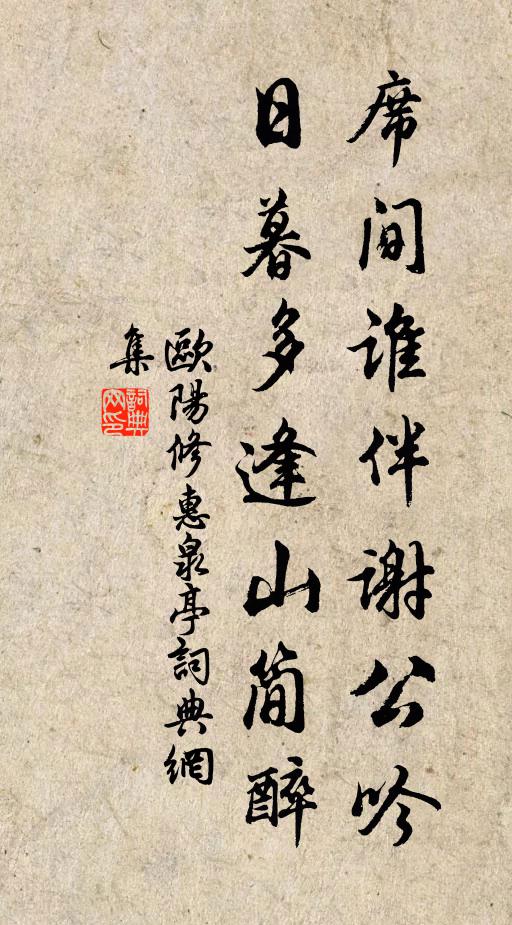 席间谁伴谢公吟
日暮多逢山简醉
歐陽修惠泉亭詞典網
集
詞典
网印